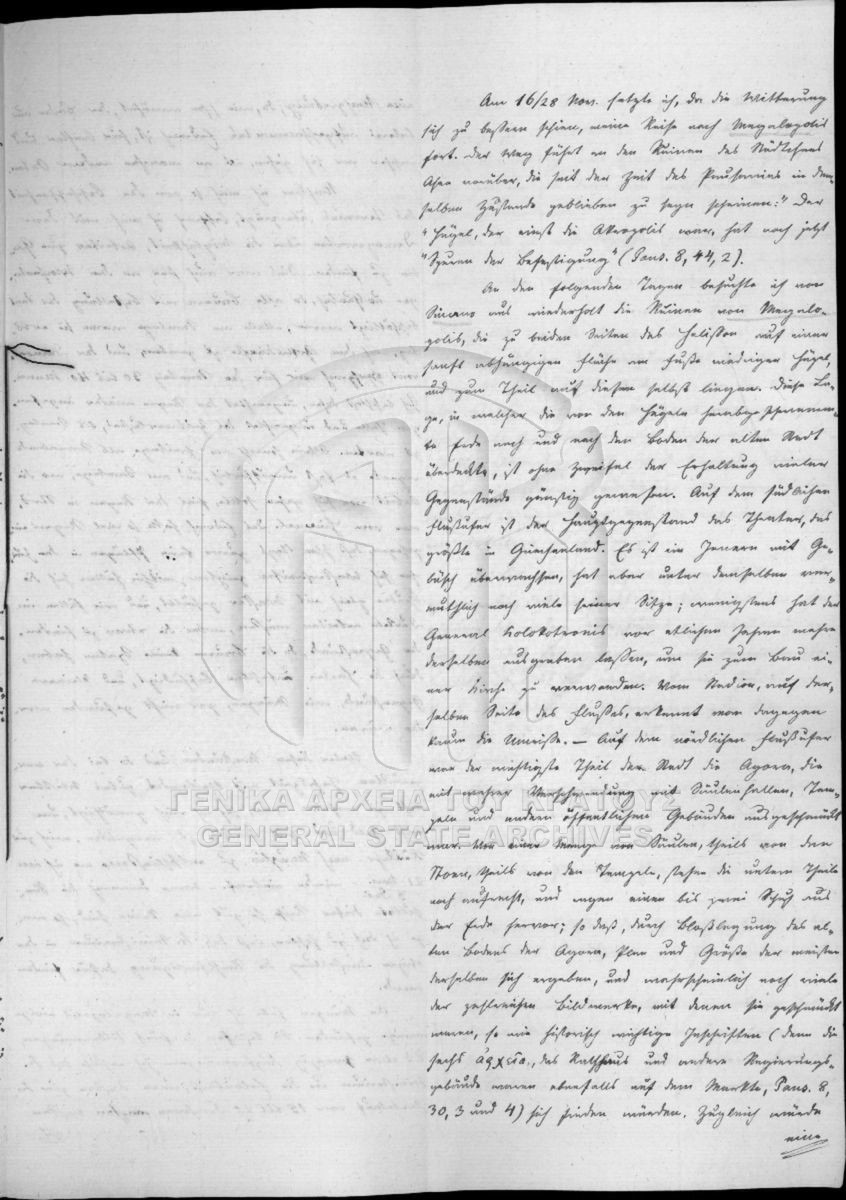 Am 16/28 Nov. setzte ich, da die Witterung
sich zu bessern schien, meine Reise nach Megalopolis
fort. Der Weg führt an den Ruinen des Städtchens
Asea vorüber, die seit der Zeit des Pausanias in dem-
selben Zustande geblieben zu seyn scheinen: "Der
"Hügel, der einst die Akropolis war, hat noch jetzt
"Spuren der Befestigung" (Paus. 8, 44, 2).
An den folgenden Tagen besuchte ich von
Sinano aus wiederholt die Ruinen von Megalo-
polis, die zu beiden Seiten des Helisson auf einer
sanft abhängigen Fläche am Fuße niedriger Hügel,
und zum Theil auf diesen selbst liegen. Diese La-
ge, in welcher die von den Hügeln herabgeschwemm-
te Erde nach und nach den Boden der alten Stadt
überdeckte, ist ohne Zweifel der Erhaltung vieler
Gegenstände günstig gewesen. Auf dem südlichen
Flußufer ist der Hauptgegenstand das Theater, das
größte in Griechenland. Es ist im Innern mit Ge-
büsch überwachsen, hat aber unter demselben ver-
muthlich noch viele seiner Sitze; wenigstens hat der
General Kolokotronis vor etlichen Jahren mehre
derselben ausgraben lassen, um sie zum Bau ei-
ner Kirche zu verwenden. Vom Stadion, auf der-
selben Seite des Flußes, erkennt man dagegen
kaum die Umrisse. — Auf dem nördlichen Flußufer
war der wichtigste Theil der Stadt die Agora, die
mit wahrer Verschwendung mit Säulenhallen, Tem-
peln und andern öffentlichen Gebäuden ausgeschmückt
war. Von einer Menge von Säulen, theils von den
Stoen, theils von den Tempeln, stehen die untern Theile
noch aufrecht, und ragen einen bis zwei Schuh aus
der Erde hervor; so daß, durch Bloßlegung des al-
ten Bodens der Agora, Plan und Größe der meisten
derselben sich ergeben, und wahrscheinlich noch viele
der zahlreichen Bildwerke, mit denen sie geschmückt
waren, so wie historisch wichtige Inschriften (denn die
sechs ἀρχεῖα, das Rathhaus und andere Regierungs-
gebäude waren ebenfalls auf dem Markte, Paus. 8,
30, 3 und 4) sich finden würden. Zugleich würde
eine
ΓΕΝΙΚΑ ΑΡΧΕΙΑ ΤΟΥ ΚΡΑΤΟΥΣ
GENERAL STATE ARCHIVES